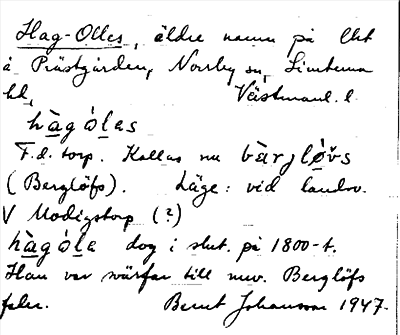 Hag-Olles, äldre namn på lht
å Prästgården, Norrby sn, Simtuna
hd, Västmanl. l.
hàgólas
F.d. torp. Kallas nu bàrjlóvs
(Berglöfs). Läge: vid landsv.
V Modigstorp (?)
hàgóla dog i slut. på 1800-t.
Han var svärfar till nuv. Berglöfs
fader. Bernt Johansson 1947.